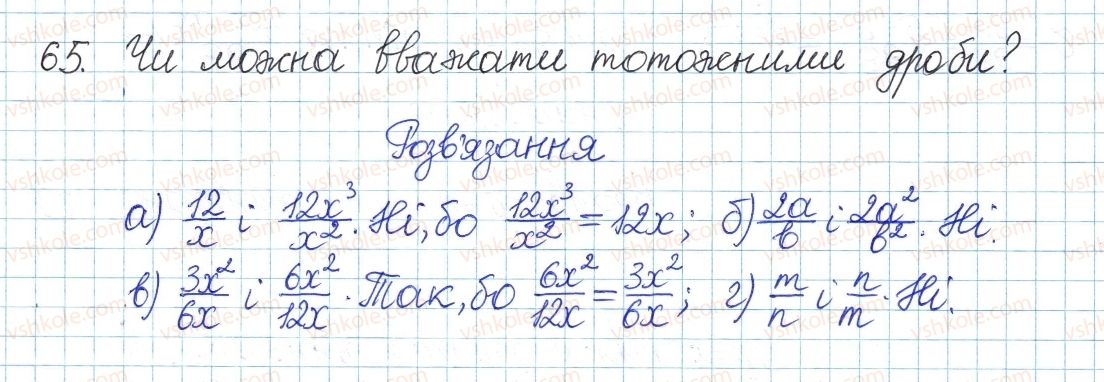 65. Чи можна вважати тотожними дроби?
Розв'язання
а) 12/x і 12x³/x². Ні, бо 12x³/x² = 12x; б) 2a/b і 2a²/b². Ні.
в) 3x²/6x і 6x²/12x. Так, бо 6x²/12x = 3x²/6x; г) m/n і n/m. Ні.